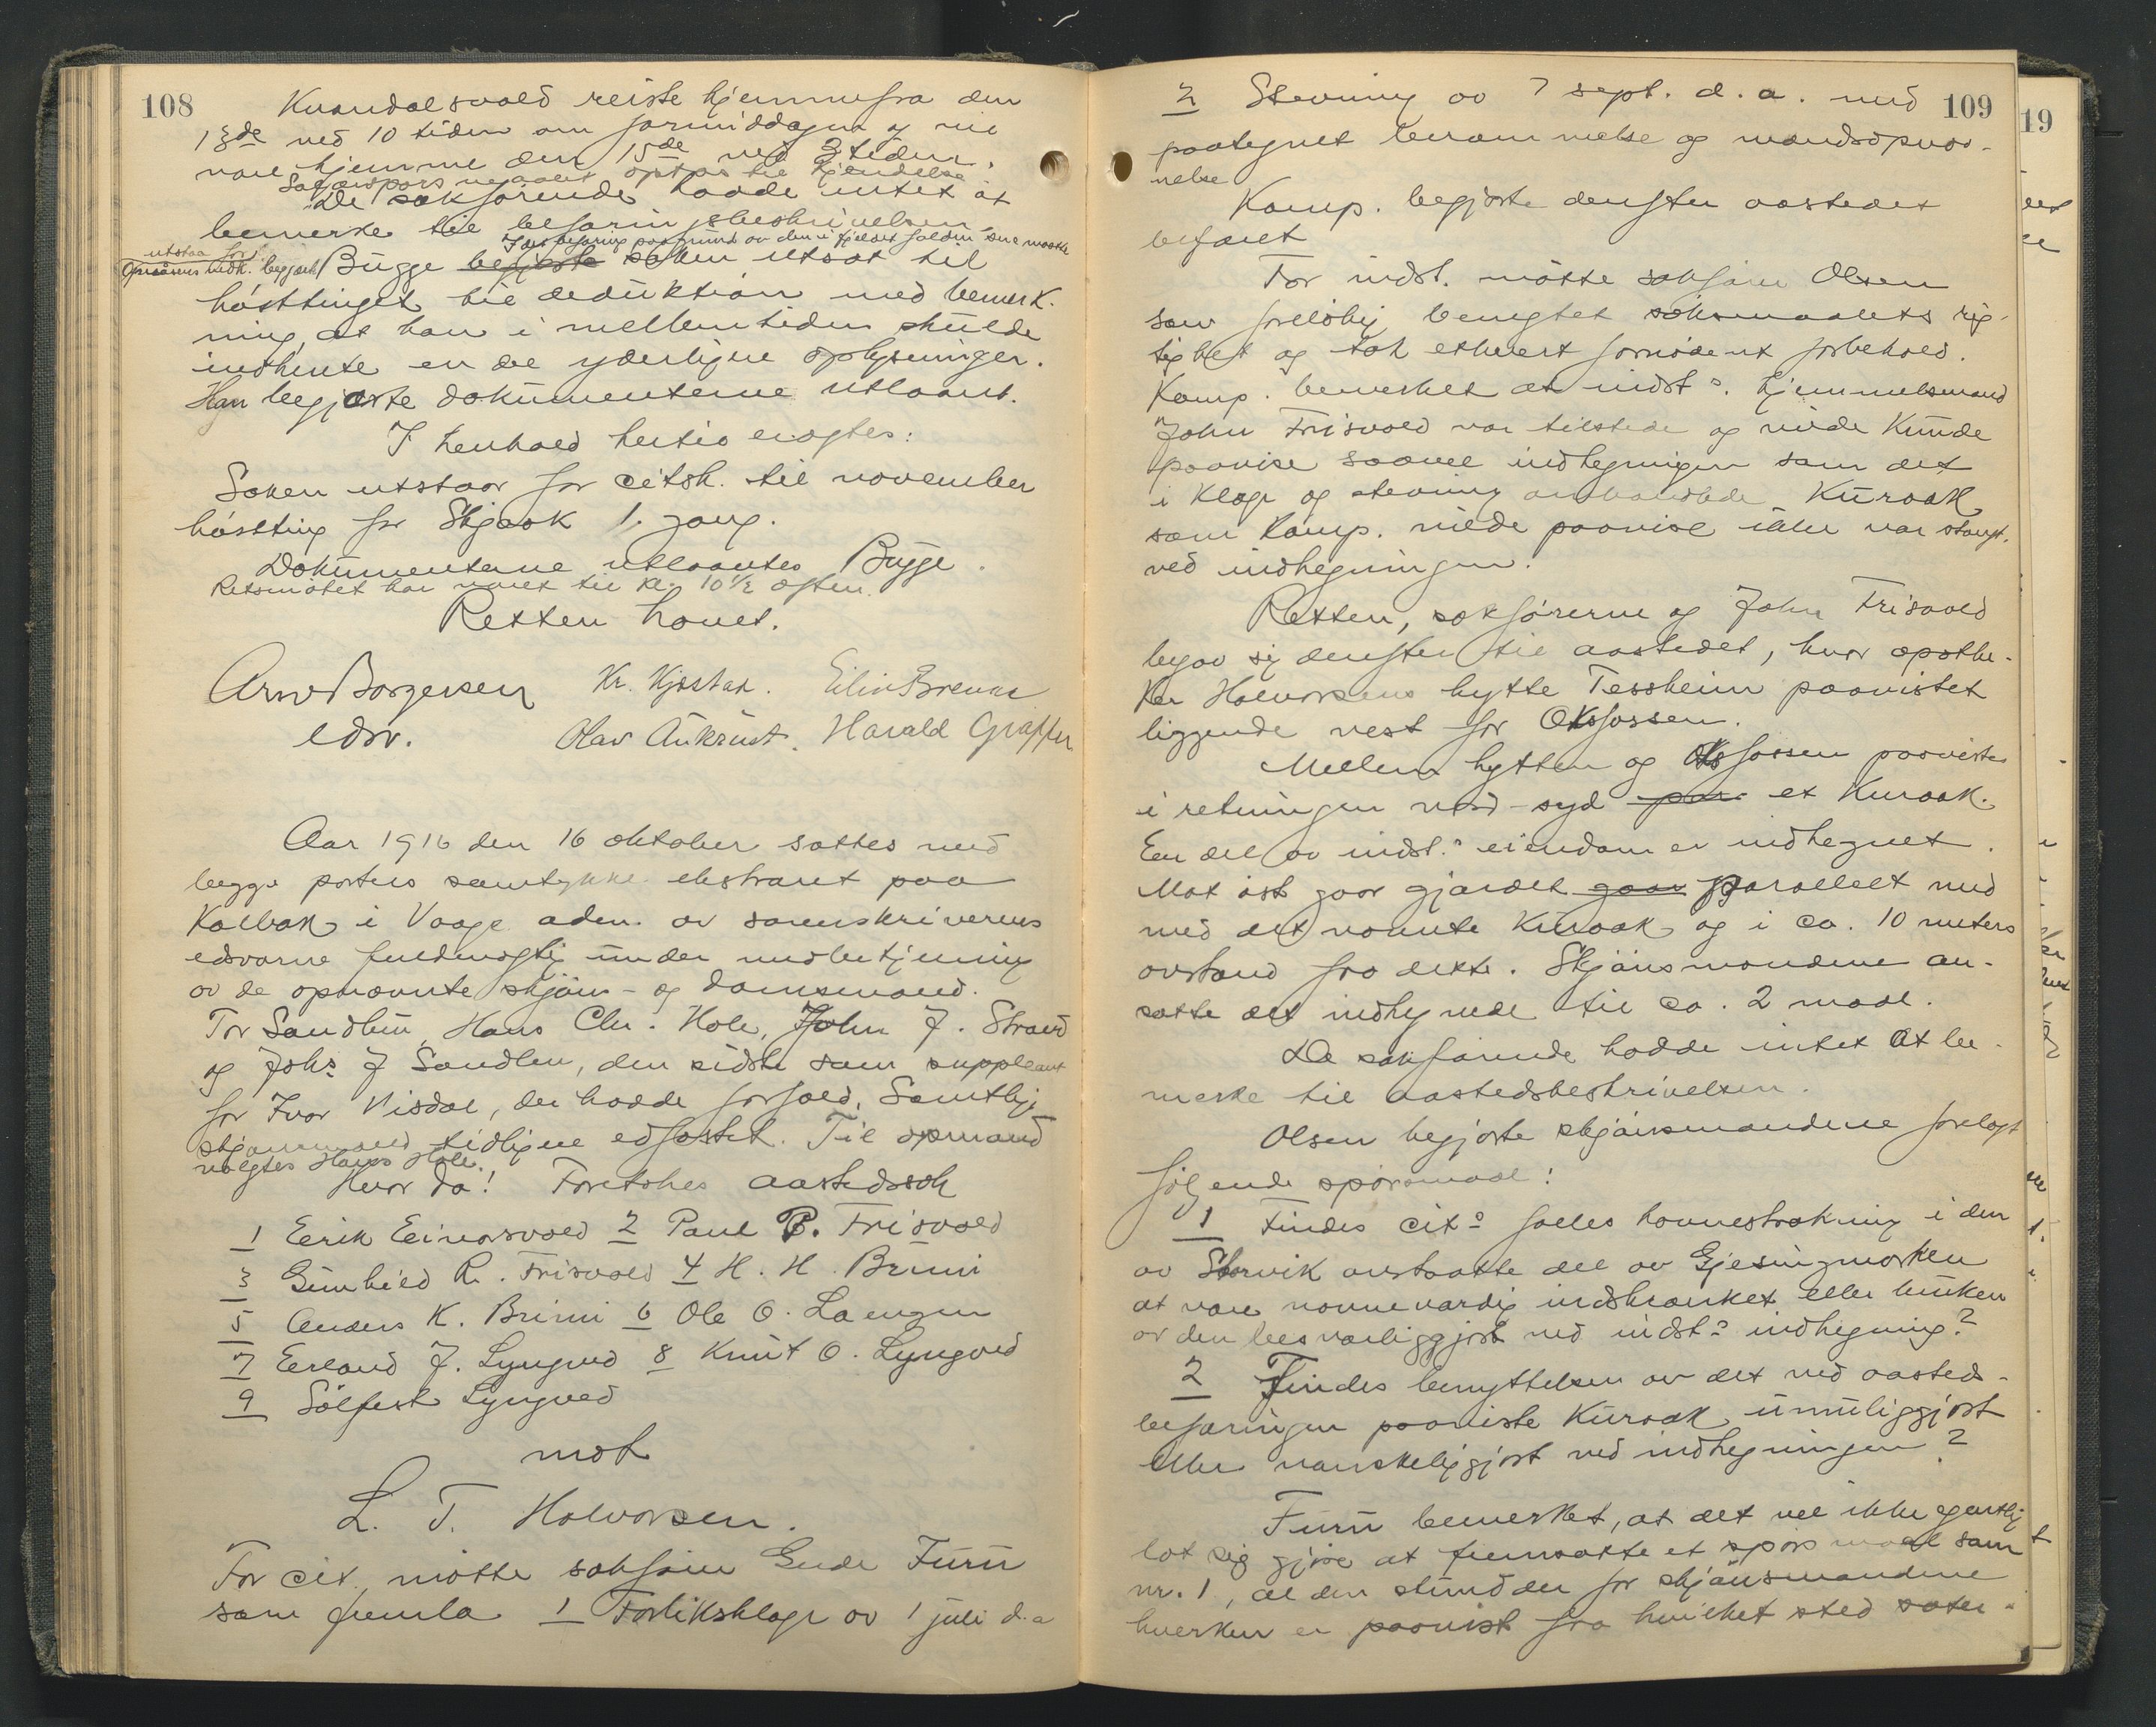 108
Kvandalsvold reiste hjemmefra den
13de ved 10 tiden om formiddagen og vil
være hjemme den 15de ved 3 tiden.
Salærspørsmaalet optas til kjendelse
De sakførende hadde intet at
bemerke til befaringsbeskrivelsen
I det befaring paa grund av den i fjeldet faldne sne maatte
utstaa for
indk. begjærte Bugge begjærte saken utsat til
høsttinget til deduktion med bemerk-
ning, at han i mellemtiden skulde
indhente en del yderligere oplysninger.
Han begjærte dokumenterne utlaant.
I henhold hertil eragtes:
Saken utstaar for citsk. til november
høstting for Skjaak 1. gang.
Dokumenterne utlaantes Bugge.
Retsmøtet har varet til kl. 10 1/2 aften.
Retten hævet.
Arne Borgersen Kr. Kjæstad. Eilin Brenna
edsv. Olav Aukrust. Harald Graffer
Aar 1916 den 16 oktober sattes med
begge parters samtykke ekstraret paa
Kalbak i Vaage adm. av sorenskriverens
edsvorne fuldmægtig under medbetjening
av de opnævnte skjøns- og domsmænd.
Tor Sandbu, Hans Chr. Hole, John J. Strand
og Johs J Sandbu, den sidste som suppleant
for Ivar Visdal, der hadde forfald. Samtlige
skjønsmænd tidligere edfæstet. Til opmand
valgtes Hans Hole.
Hvor da! Foretokes aastedssak
1 Eerik Einarsvold 2 Paul P. Frisvold
3 Gunhild R. Frisvold 4 H. H. Brimi
5 Anders K. Brimi 6 Ole O. Laengen
7 Erland J. Lyngved 8 Knut O. Lyngved
9 Sølfest Lyngved
mot
L. T. Halvorsen.
For cit. møtte sakfører Gude Furu
som fremla 1 Forliksklage av 1 juli d.a
109
2 Stevning av 7 sept. d.a. med
paategnet berammelse og mandsopnæv-
nelse
Komp. begjærte derefter aastedet
befaret
For indst. møtte sakfører Olsen
som foreløbig benegtet søksmaalets rig-
tighet og tok ethvert fornødent forbehold.
Komp. bemerket at indst.s hjemmelsmand
John Frisvold var tilstede og vilde kunde
paavise saavel indhegningen som det
i klage og stevning omhandlede Kuraak
som komp. vilde paavise ikke var stængt.
ved indhegningen.
Retten, sakførerne og John Frisvold
begav sig derefter til aastedet, hvor apothe-
ker Halvorsens hytte Tessheim paavistes
liggende vest for Oksfossen.
Mellem hytten og Oksfossen paavistes
i retningen nord-syd par et Kuraak.
En del av indst.s eiendom er indhegnet.
Mot øst gaar gjærdet gaar parallelt med
med det nævnte Kuraak og i ca. 10 meters
avstand fra dette. Skjønsmændene an-
satte det indhegnede til ca. 2 maal.
De sakførende hadde intet at be-
merke til aastedsbeskrivelsen.
Olsen begjærte skjønsmændene forelagt
følgende spørsmaal:
1 Findes cit.s fælles havnestrækning i den
av Storvik avstaatte del av Gjesingmarken
at være nævneværdig indskrænket eller bruken
av den besværliggjort ved indst.s indhegning?
2 Findes benyttelsen av det ved aasteds-
befaringen paaviste Kuraak umuliggjort
eller vanskeliggjort ved indhegningen?
Furu bemerket, at det vel ikke egentlig
lot sig gjøre at fremsætte et spørsmaal som
nr. 1, al den stund der for skjønsmændene
hverken er paavist fra hvilket sted sæter-
19